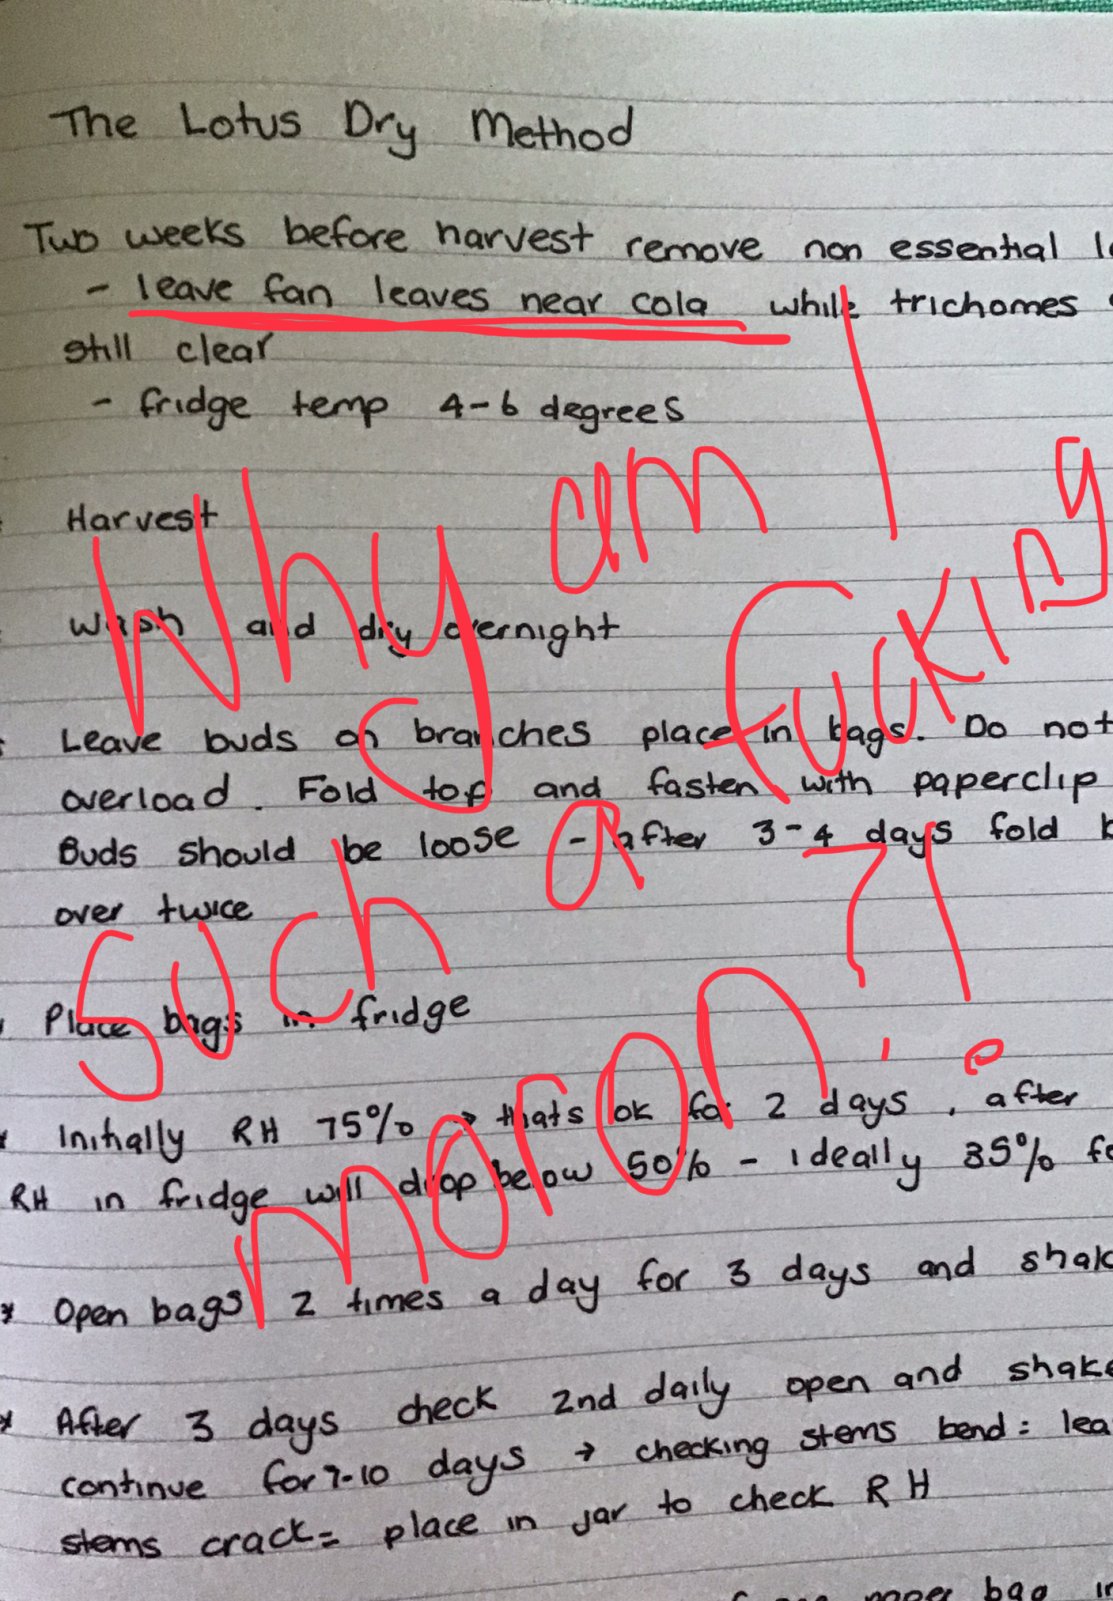 The Lotus Dry Method
Two weeks before harvest remove non essential
- leave fan leaves near cola while trichomes
still clear
- fridge temp 4-6 degrees
Harvest
Wash and dry overnight
Leave buds on branches place in bags. Do not
overload. Fold top and fasten with paperclip
Buds should be loose - after 3-4 days fold
over twice
Place bags in fridge
* Initially RH 75% → thats ok for 2 days, after
RH in fridge will drop below 50% - ideally 35%
* Open bags 2 times a day for 3 days and
* After 3 days check 2nd daily open and shake
continue for 7-10 days → checking stems bend =
stems crack = place in jar to check RH
paper bag
Why am I
fucking
such a
moron?!